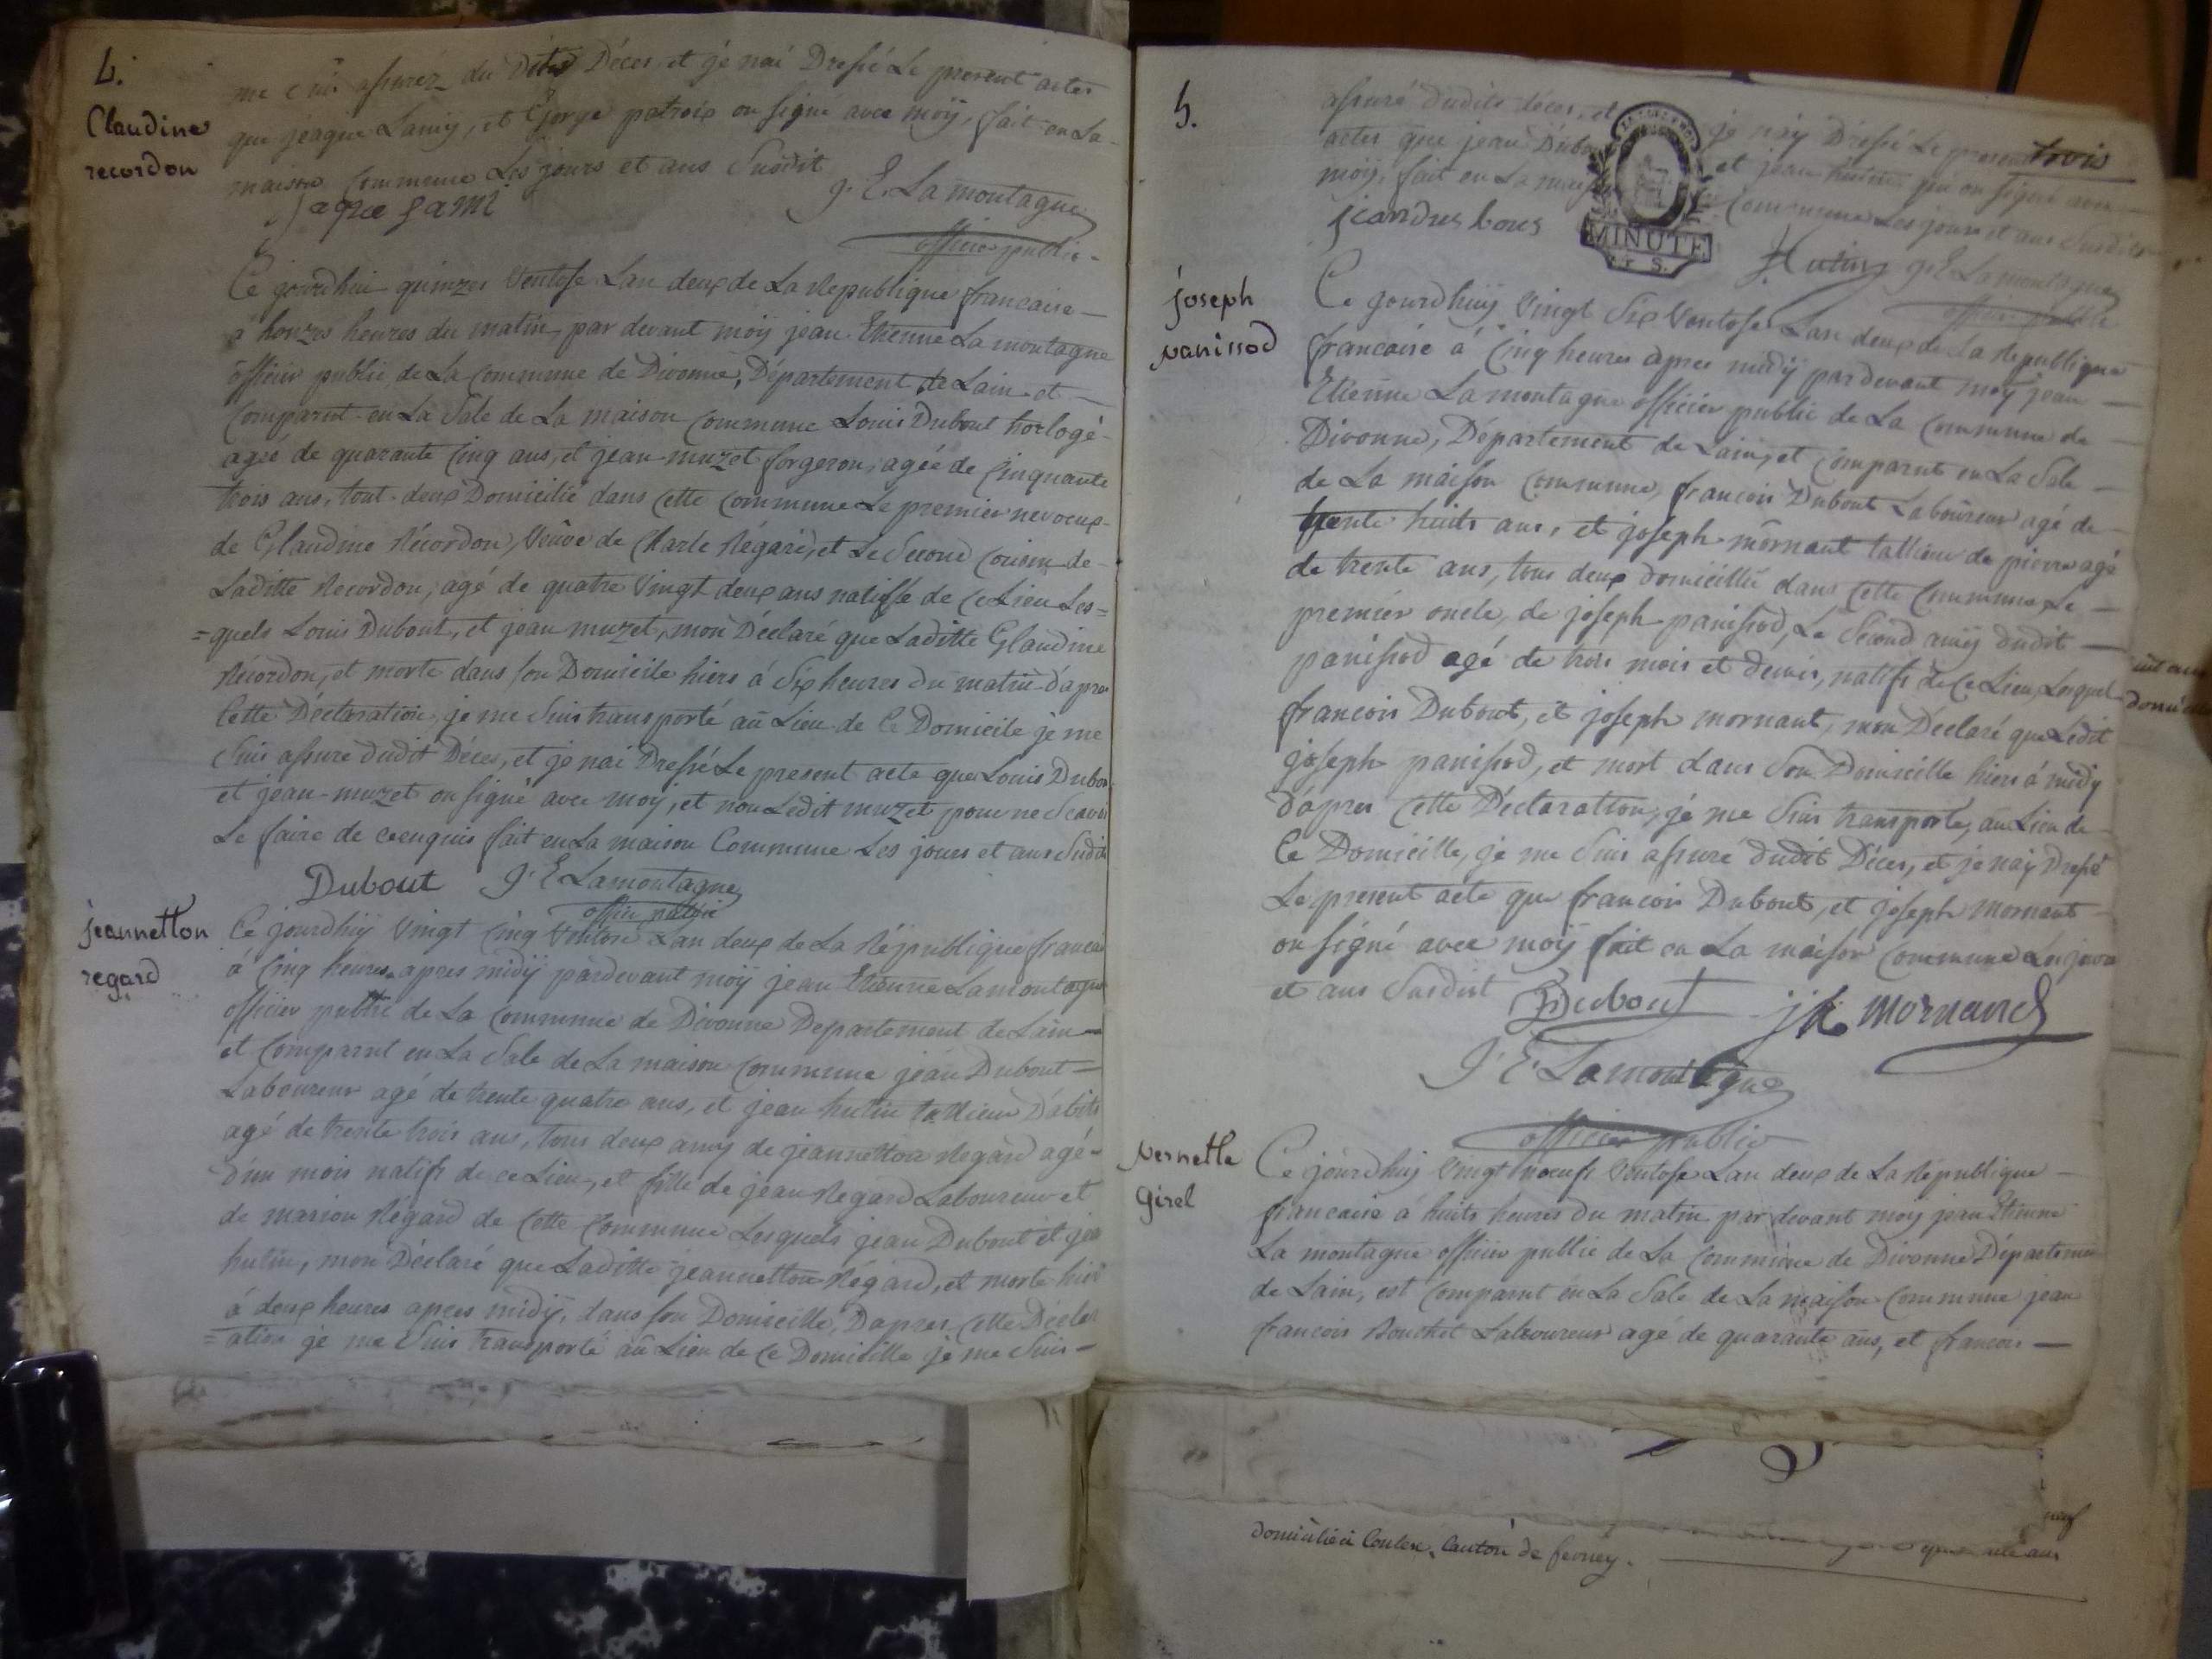 4.
me suis assurez du dites Déces et je nai Dressé Le present actes
que jeaque Lamy, et Gorge patroix on signé avec moÿ, fait en La
maison commune Les jours et ans Susdit
jaque lami
J. E. Lamontagne
officier public
Claudine
recordon
Ce jourdhui quinzes Ventose Lan deux de La Republique francaise
a honzes heures du matin par devant moÿ jean Etienne La montagne
officier public de La commune de Divonne, Département de Lain et
comparut en La Sale de La maison commune Louis Dubout horlogé
agée de quarante Cinq ans, et jean muzet forgeron, agée de Cinquante
trois ans, tout deux Domicilié dans cette commune Le premier nevoeux
de Glaudine Récordon, Veûve de Charle Régard, et Le Second Cousin de
Laditte Recordon, agé de quatre Vingt deux ans natisse de ce Lieu Les=
=quels Louis Dubout, et jean muzet, mon Déclaré que Laditte Glaudine
Récordon, et morte dans son Domicile hiers à Six heures du matin d'apres
Cette Déclaration, je me Suis transporté aû Lieu de Ce Domicile je me
Suis assure dudit Déces, et je nai Dressé Le present acte que Louis Dubou
et jean muzet on signé avec moÿ, et non Ledit muzet pour ne Scavoir
Le faire de ce enquis fait en La maison Commune Les jours et ans Susdit
Dubout J. E. Lamontagne
officier public
jeannetton
regard
Ce jourdhÿ Vingt Cinq Ventose Lan deux de La République francai
à Cinq heures apres midÿ pardevant moÿ jean Etienne Lamontagne
officier public de La commune de Divonne Departement de Lain
et comparut en La Sale de La maison commune jean Dubout =
Laboureur agé de trente quatre ans, et jean hutin tallieur Dabits
agé de trente trois ans, tous deux amis de jeannetton Regard agé
d'un mois natifs de ce Lieu, et fille de jean Regard Laboureur et
de marion Régard de cette commune Lesquels jean Dubout et jea
hutin, mon Déclaré que Laditte jeannetton Régard, et morte hier
à deux heures apres midÿ, dans son Domicille, Dapres cette Déclar
=ation je me Suis transporté aû Lieu de Ce Domicille je me Suis
5.
trois
assuré dudits déces, et je naÿ Dressé Le present
actes que jean Dubou et jean hutin on signé avec
moÿ, fait en La maison commune Les jours et ans Susdits
MINUTE
jean dubous
Hutin J. E. La montagne
officier public
joseph
panissod
Ce jourdhuÿ Vingt Six Ventose Lan deux de La Republique
francaise à Cinq heures apres midÿ pardevant moÿ jean
Etienne La montagne officier public de La commune de
Divonne, Département de Lain, et comparut en La Sale
de La maison commune, francois Dubout Laboureur agé de
trente huits ans, et joseph mornant tallieur de pierre agé
de trente ans, tous deux domicillié dans cette commune Le
premier oncle, de joseph panissod, Le Second amÿ dudit
panissod agé de trois mois et demis, natifs de ce Lieu, Lesquel
francois Dubout, et joseph mornant, mon Déclaré que Ledit
joseph panissod, et mort dans Son Domicille hiers à midÿ
d'apres Cette Déclaration, je me Suis transporté, aû Lieu de
Ce Domicille, je me Suis assuré dudit Déces, et je naÿ Dressé
Le present acte que francois Dubout, et joseph mornant
on signé avec moÿ fait en La maison commune Les jours
et ans Susdit
F Dubout
J. E. Lamontagne
officier public
pernette
girel
Ce jourdhuÿ Vingt noeufs Ventose Lan deux de La République
francaise à huits heures du matin par devant moÿ jean Etienne
La montagne officier public de La commune de Divonne Départeme
de Lain, est comparut en La Sale de La maison commune jean
francois Bouchet Laboureur agé de quarante ans, et francois
neuf
Domicilié à Coulex, Canton de ferney.